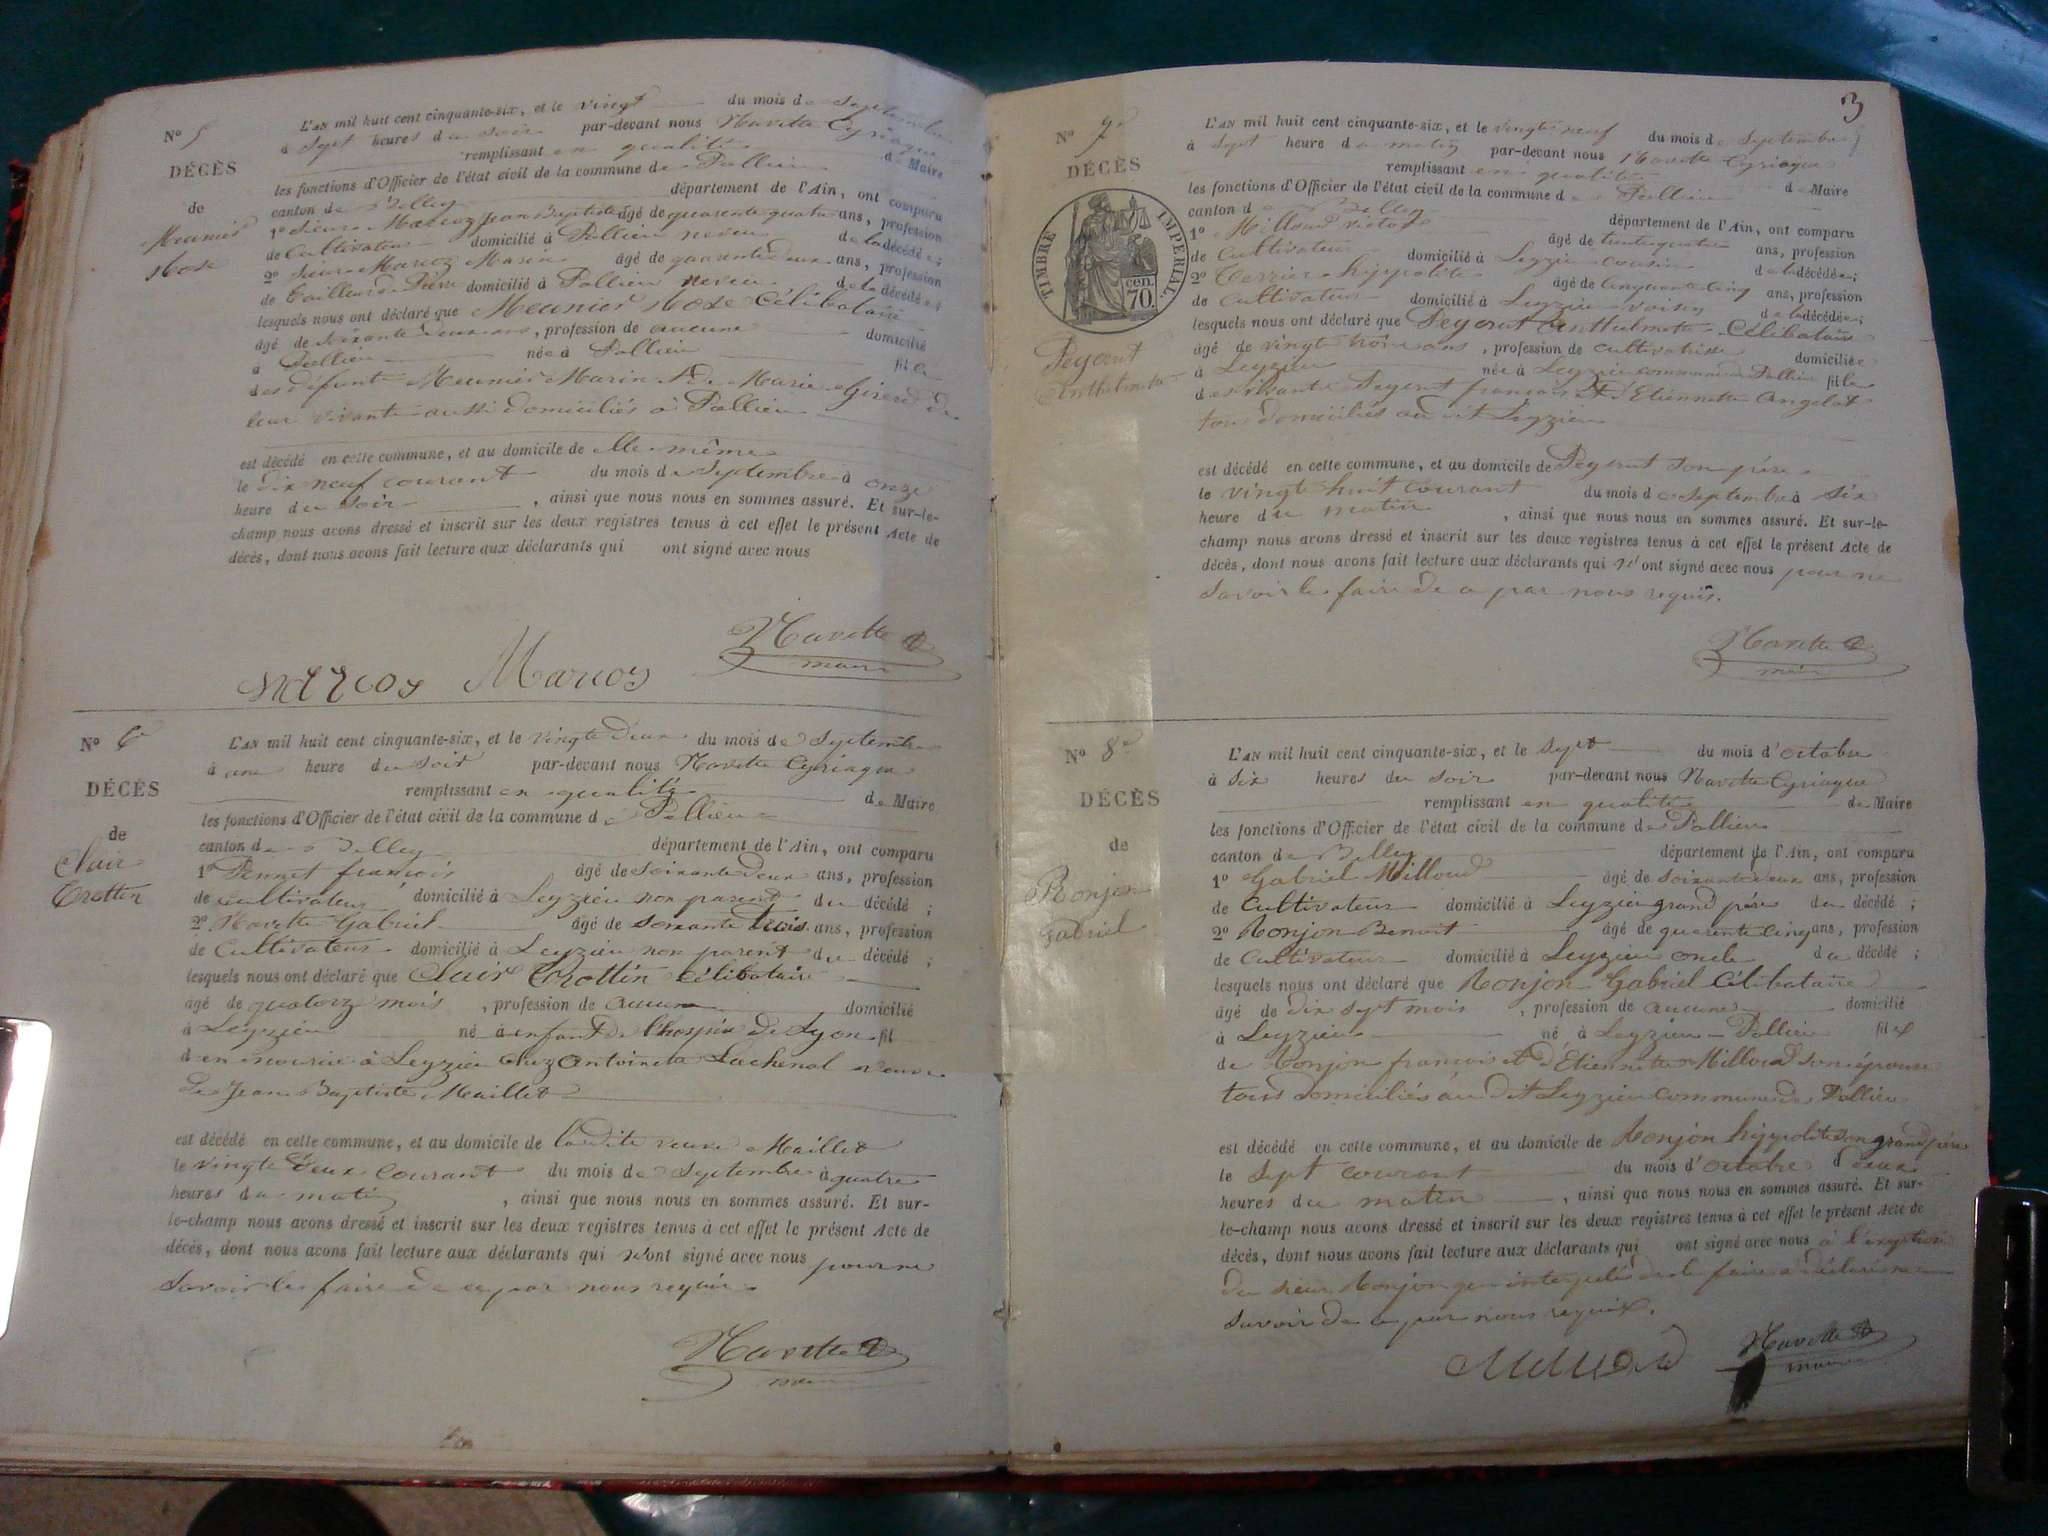 Nº 5
DÉCÈS
de
Meunier
Rose
L'AN mil huit cent cinquante-six, et le vingt du mois de Septembre
à Sept heures du soir par-devant nous Navette Cyriaque
remplissant en qualité de Maire
les fonctions d'Officier de l'état civil de la commune de Pollieu
canton de Belley département de l'Ain, ont comparu
1º Sieur Marcoz Jean Baptiste âgé de quarante quatre ans, profession
de Cultivateur domicilié à Pollieu neveu de la décédée;
2º Sieur Marcoz Marin âgé de quarante deux ans, profession
de Tailleur de Pierre domicilié à Pollieu neveu de la décédée;
lesquels nous ont déclaré que Meunier Rose Célibataire
âgé de soixante ans, profession de aucune domicilié
à Pollieu née à Pollieu fille
des défunts Meunier Marin et de Marie Girerd de
leur vivant aussi domiciliés à Pollieu
est décédé en cette commune, et au domicile de elle même
le dix neuf courant du mois de Septembre à onze
heure du soir, ainsi que nous nous en sommes assuré. Et sur-le-
champ nous avons dressé et inscrit sur les deux registres tenus à cet effet le présent Acte de
décès, dont nous avons fait lecture aux déclarants qui ont signé avec nous
Marcoz Marcoz Navette
maire
Nº 6
DÉCÈS
de
Clair
Trottin
L'AN mil huit cent cinquante-six, et le vingt deux du mois de Septembre
à une heure du soir par-devant nous Navette Cyriaque
remplissant en qualité de Maire
les fonctions d'Officier de l'état civil de la commune de Pollieu
canton de Belley département de l'Ain, ont comparu
1º Pennet françois âgé de Soixante deux ans, profession
de cultivateur domicilié à Leyzieu non parent du décédé;
2º Navette Gabriel âgé de soixante trois ans, profession
de Cultivateur domicilié à Leyzieu non parent du décédé;
lesquels nous ont déclaré que Clair Trottin Célibataire
âgé de quatorze mois, profession de aucune domicilié
à Leyzieu né à enfant de l'hospice de Lyon fil
d en nourice à Leyzieu chez Antoinette Lachenal veuve
de Jean Baptiste Maillet
est décédé en cette commune, et au domicile de ladite veuve Maillet
le vingt deux courant du mois de Septembre à quatre
heures du matin, ainsi que nous nous en sommes assuré. Et sur-
le-champ nous avons dressé et inscrit sur les deux registres tenus à cet effet le présent Acte de
décès, dont nous avons fait lecture aux déclarants qui n'ont signé avec nous pour ne
savoir le faire de ce par nous requis.
Navette
maire
3
Nº 7
DÉCÈS
TIMBRE IMPERIAL
70 cen.
Pegerut
Anthelmette
L'AN mil huit cent cinquante-six, et le vingt neuf du mois de Septembre
à sept heure du matin par-devant nous Navette Cyriaque
remplissant en qualité de Maire
les fonctions d'Officier de l'état civil de la commune de Pollieu
canton de Belley département de l'Ain, ont comparu
1º Milloud Victor âgé de trente quatre ans, profession
de Cultivateur domicilié à Leyzieu cousin de la décédée;
2º Terrier hippolite âgé de cinquante cinq ans, profession
de Cultivateur domicilié à Leyzieu voisin de la décédée;
lesquels nous ont déclaré que Pegerut Anthelmette Célibataire
âgé de vingt trois ans, profession de cultivatrice domiciliée
à Leyzieu née à Leyzieu commune de Pollieu fille
des vivants Pegerut françois et d'Etiennette Angelot
tous domiciliés au dit Leyzieu
est décédé en cette commune, et au domicile de Pegerut son père
le vingt huit courant du mois de Septembre à six
heure du matin, ainsi que nous nous en sommes assuré. Et sur-le-
champ nous avons dressé et inscrit sur les deux registres tenus à cet effet le présent Acte de
décès, dont nous avons fait lecture aux déclarants qui n'ont signé avec nous pour ne
savoir le faire de ce par nous requis.
Navette
maire
Nº 8
DÉCÈS
de
Ronjon
Gabriel
L'AN mil huit cent cinquante-six, et le sept du mois d'octobre
à six heures du soir par-devant nous Navette Cyriaque
remplissant en qualité de Maire
les fonctions d'Officier de l'état civil de la commune de Pollieu
canton de Belley département de l'Ain, ont comparu
1º Gabriel Milloud âgé de soixante deux ans, profession
de Cultivateur domicilié à Leyzieu grand père du décédé;
2º Ronjon Benoit âgé de quarente cinq ans, profession
de Cultivateur domicilié à Leyzieu oncle du décédé;
lesquels nous ont déclaré que Ronjon Gabriel Célibataire
âgé de dix sept mois, profession de aucune domicilié
à Leyzieu né à Leyzieu Pollieu fils
de Ronjon françois et d'Etiennette Milloud son épouse
tous domiciliés au dit Leyzieu commune de Pollieu
est décédé en cette commune, et au domicile de Ronjon hippolite son grand père
le sept courant du mois d'octobre à deux
heures du matin, ainsi que nous nous en sommes assuré. Et sur-
le-champ nous avons dressé et inscrit sur les deux registres tenus à cet effet le présent Acte de
décès, dont nous avons fait lecture aux déclarants qui ont signé avec nous à l'exeption
du sieur Ronjon qui interpelé de le faire a déclaré ne
savoir de ce par nous requis.
Milloud Navette
maire